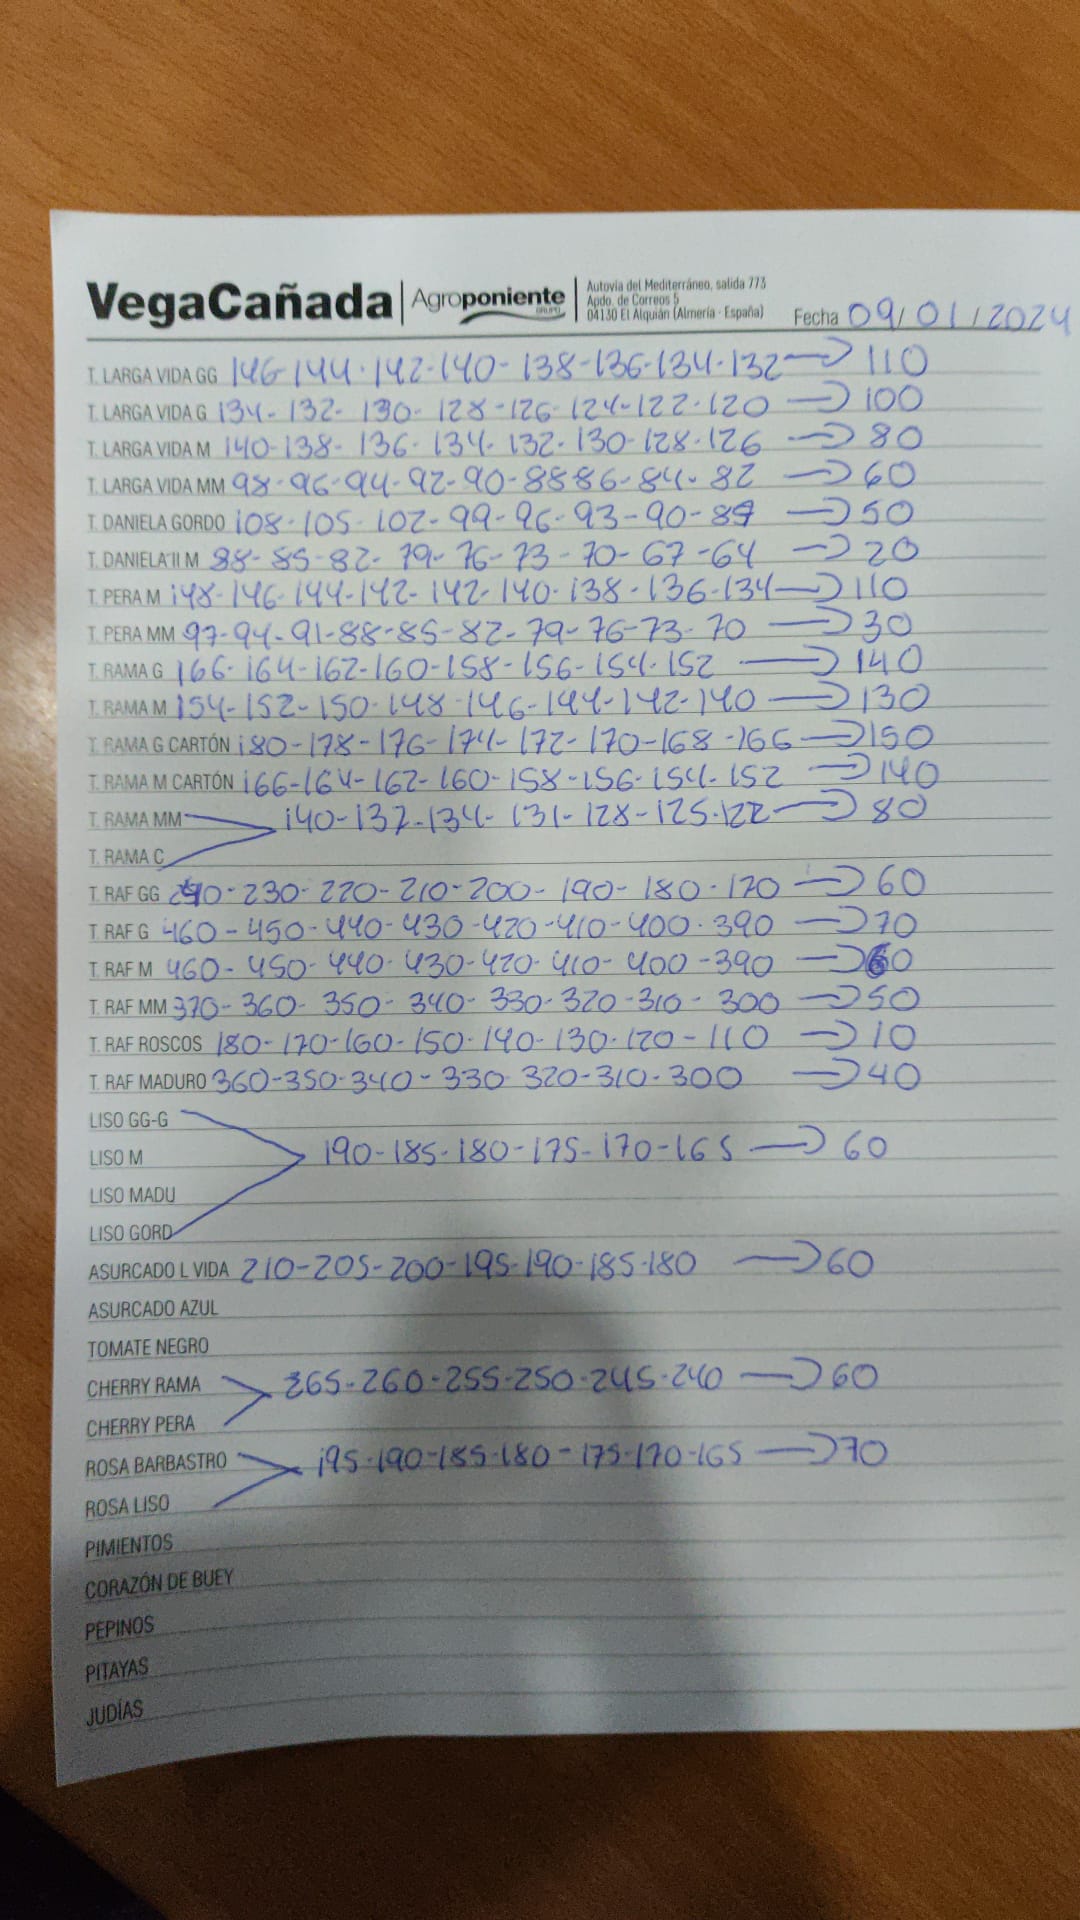 VegaCañada Agroponiente GRUPO
Autovía del Mediterráneo, salida 773
Apdo. de Correos 5
04130 El Alquián (Almería - España)
Fecha 09/01/2024
T. LARGA VIDA GG 146-144-142-140-138-136-134-132→110
T. LARGA VIDA G 134-132-130-128-126-124-122-120→100
T. LARGA VIDA M 140-138-136-134-132-130-128-126→80
T. LARGA VIDA MM 98-96-94-92-90-8886-84-82→60
T. DANIELA GORDO 108-105-102-99-96-93-90-87→50
T. DANIELA II M 88-85-82-79-76-73-70-67-64→20
T. PERA M 148-146-144-142-142-140-138-136-134→110
T. PERA MM 97-94-91-88-85-82-79-76-73-70→30
T. RAMA G 166-164-162-160-158-156-154-152→140
T. RAMA M 154-152-150-148-146-144-142-140→130
T. RAMA G CARTÓN 180-178-176-174-172-170-168-166→150
T. RAMA M CARTÓN 166-164-162-160-158-156-154-152→140
T. RAMA MM 140-137-134-131-128-125-122→80
T. RAMA C
T. RAF GG 240-230-220-210-200-190-180-170→60
T. RAF G 460-450-440-430-420-410-400-390→70
T. RAF M 460-450-440-430-420-410-400-390→60
T. RAF MM 370-360-350-340-330-320-310-300→50
T. RAF ROSCOS 180-170-160-150-140-130-120-110→10
T. RAF MADURO 360-350-340-330-320-310-300→40
LISO GG-G
LISO M 190-185-180-175-170-165→60
LISO MADU
LISO GORD
ASURCADO L VIDA 210-205-200-195-190-185-180→60
ASURCADO AZUL
TOMATE NEGRO
CHERRY RAMA 265-260-255-250-245-240→60
CHERRY PERA
ROSA BARBASTRO 195-190-185-180-175-170-165→70
ROSA LISO
PIMIENTOS
CORAZÓN DE BUEY
PEPINOS
PITAYAS
JUDÍAS